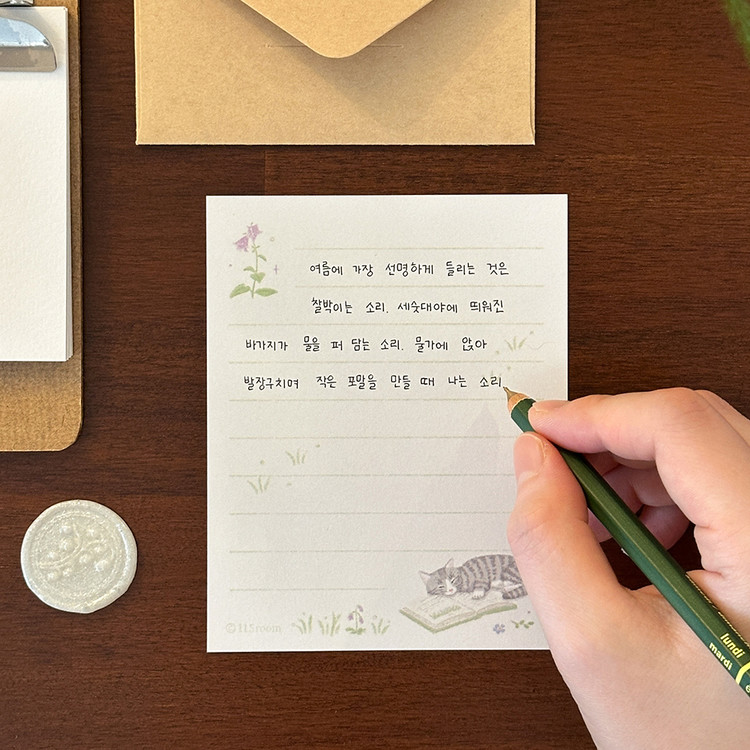 여름에 가장 선명하게 들리는 것은
찰박이는 소리. 세숫대야에 띄워진
바가지가 물을 퍼 담는 소리. 물가에 앉아
발장구치며 작은 포말을 만들 때 나는 소리
©115room
lundi
mardi